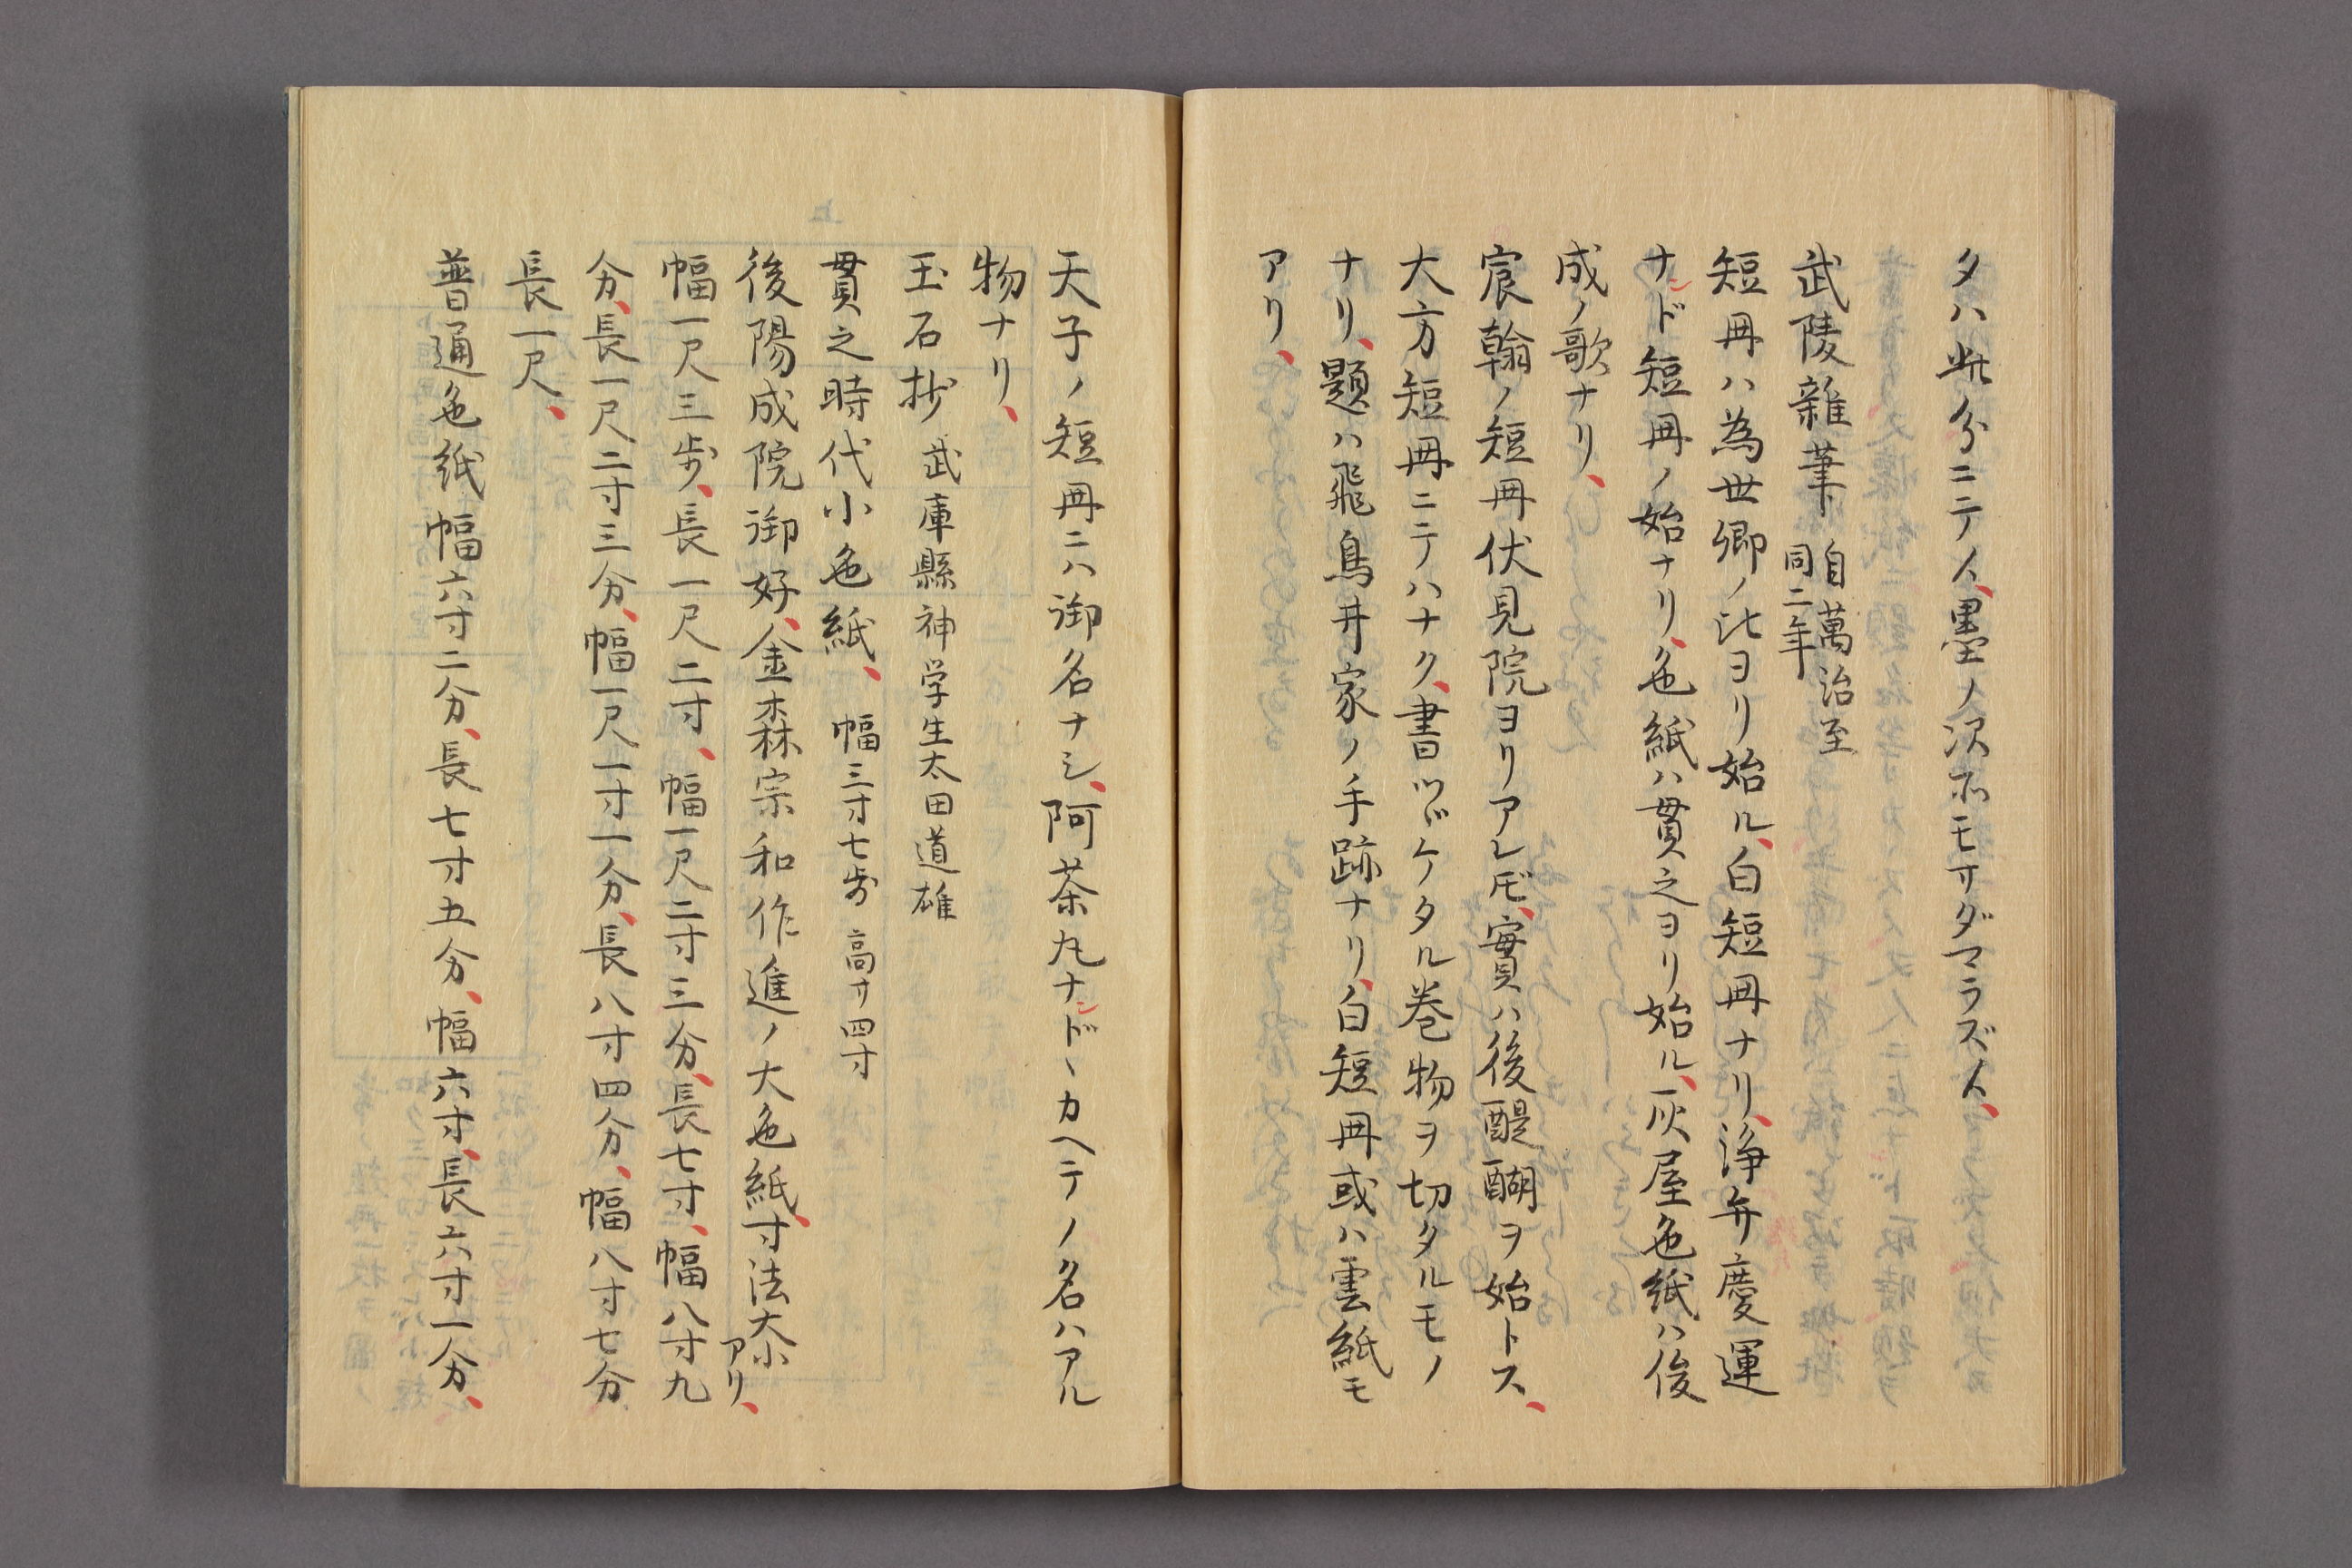 タハ此分ニテ人、墨ノ次第モサダマラズ人、
武陵雑筆 自萬治至
同二年
短冊ハ為世卿ノ比ヨリ始ル、白短冊ナリ、浄弁慶運
ナンド短冊ノ始ナリ、色紙ハ貫之ヨリ始ル、灰屋色紙ハ俊
成ノ歌ナリ、
宸翰ノ短冊伏見院ヨリアレ𪜈、實ハ後醍醐ヲ始トス、
大方短冊ニテハナク、書ツヾケタル巻物ヲ切タルモノ
ナリ、題ハ飛鳥井家ノ手跡ナリ、白短冊或ハ雲紙モ
アリ、
天子ノ短冊ニハ御名ナシ、阿茶丸ナンドヽカヘテノ名ハアル
物ナリ、
玉石抄 武庫縣神学生太田道雄
貫之時代小色紙、 幅三寸七歩 高サ四寸
後陽成院御好、金森宗和作進ノ大色紙、寸法大小
アリ、
幅一尺三歩、長一尺二寸、幅一尺二寸三分、長七寸、幅八寸九
分、長一尺二寸三分、幅一尺一寸一分、長八寸四分、幅八寸七分
長一尺、
普通色紙幅六寸二分、長七寸五分、幅六寸、長六寸一分、